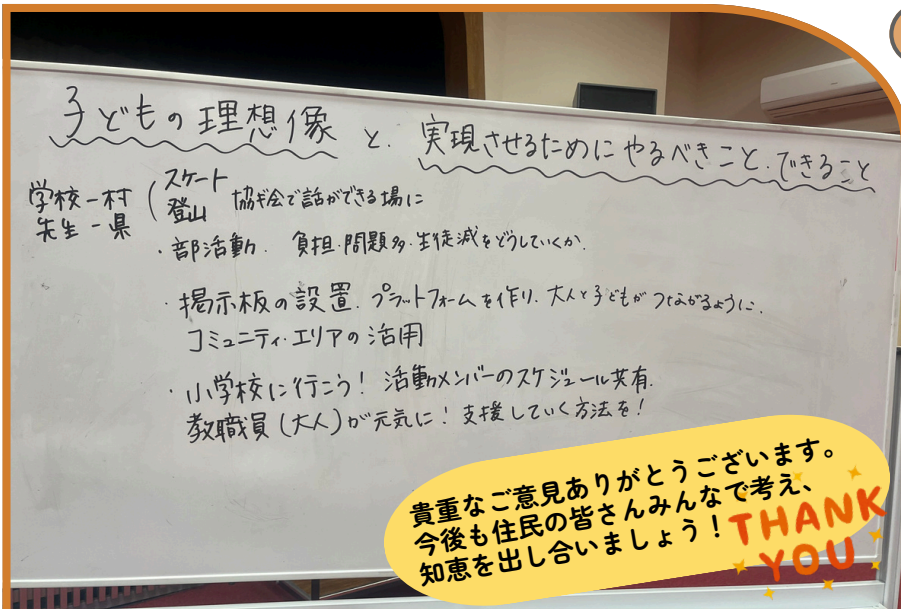 子どもの理想像と、実現させるためにやるべきこと、できること
学校－村 ( スケート
先生－県 登山 協ギ会で話ができる場に
・部活動． 負担・問題多・生徒減をどうしていくか．
・掲示板の設置．プラットフォームを作り、大人と子どもがつながるように．
コミュニティ・エリアの活用
・小学校に行こう！活動メンバーのスケジュール共有．
教職員(大人)が元気に！支援していく方法を！
貴重なご意見ありがとうございます。
今後も住民の皆さんみんなで考え、
知恵を出し合いましょう！
THANK
YOU